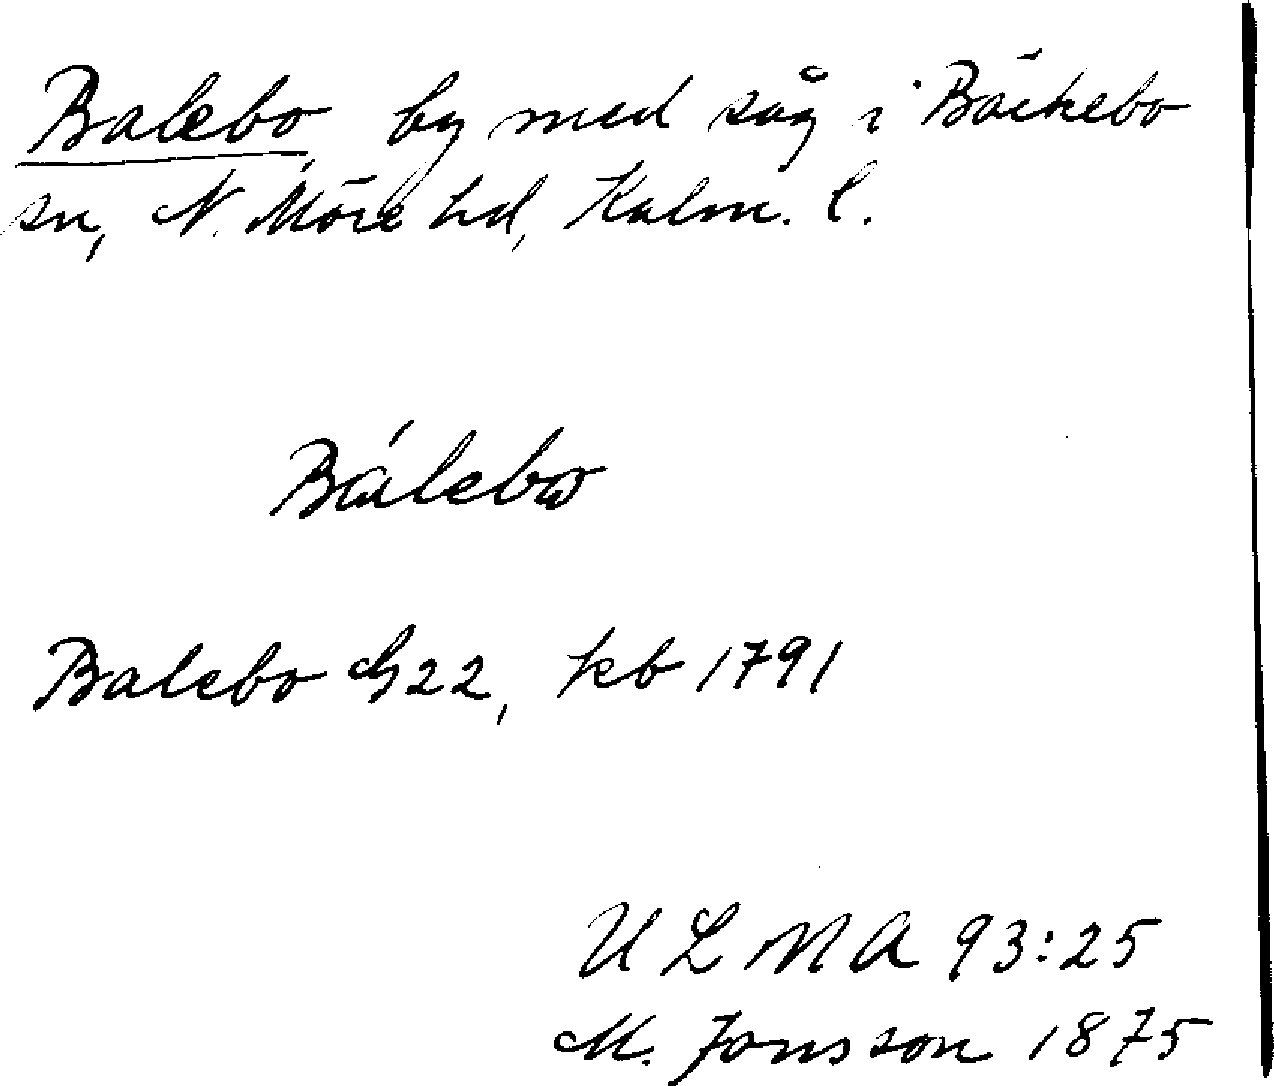 Balebo by med såg i Bäckebo
sn, N. Möre hd, Kalm. l.
Bálebω
Balebo G22, kb 1791
ULMA 93:25
M. Jonsson 1875